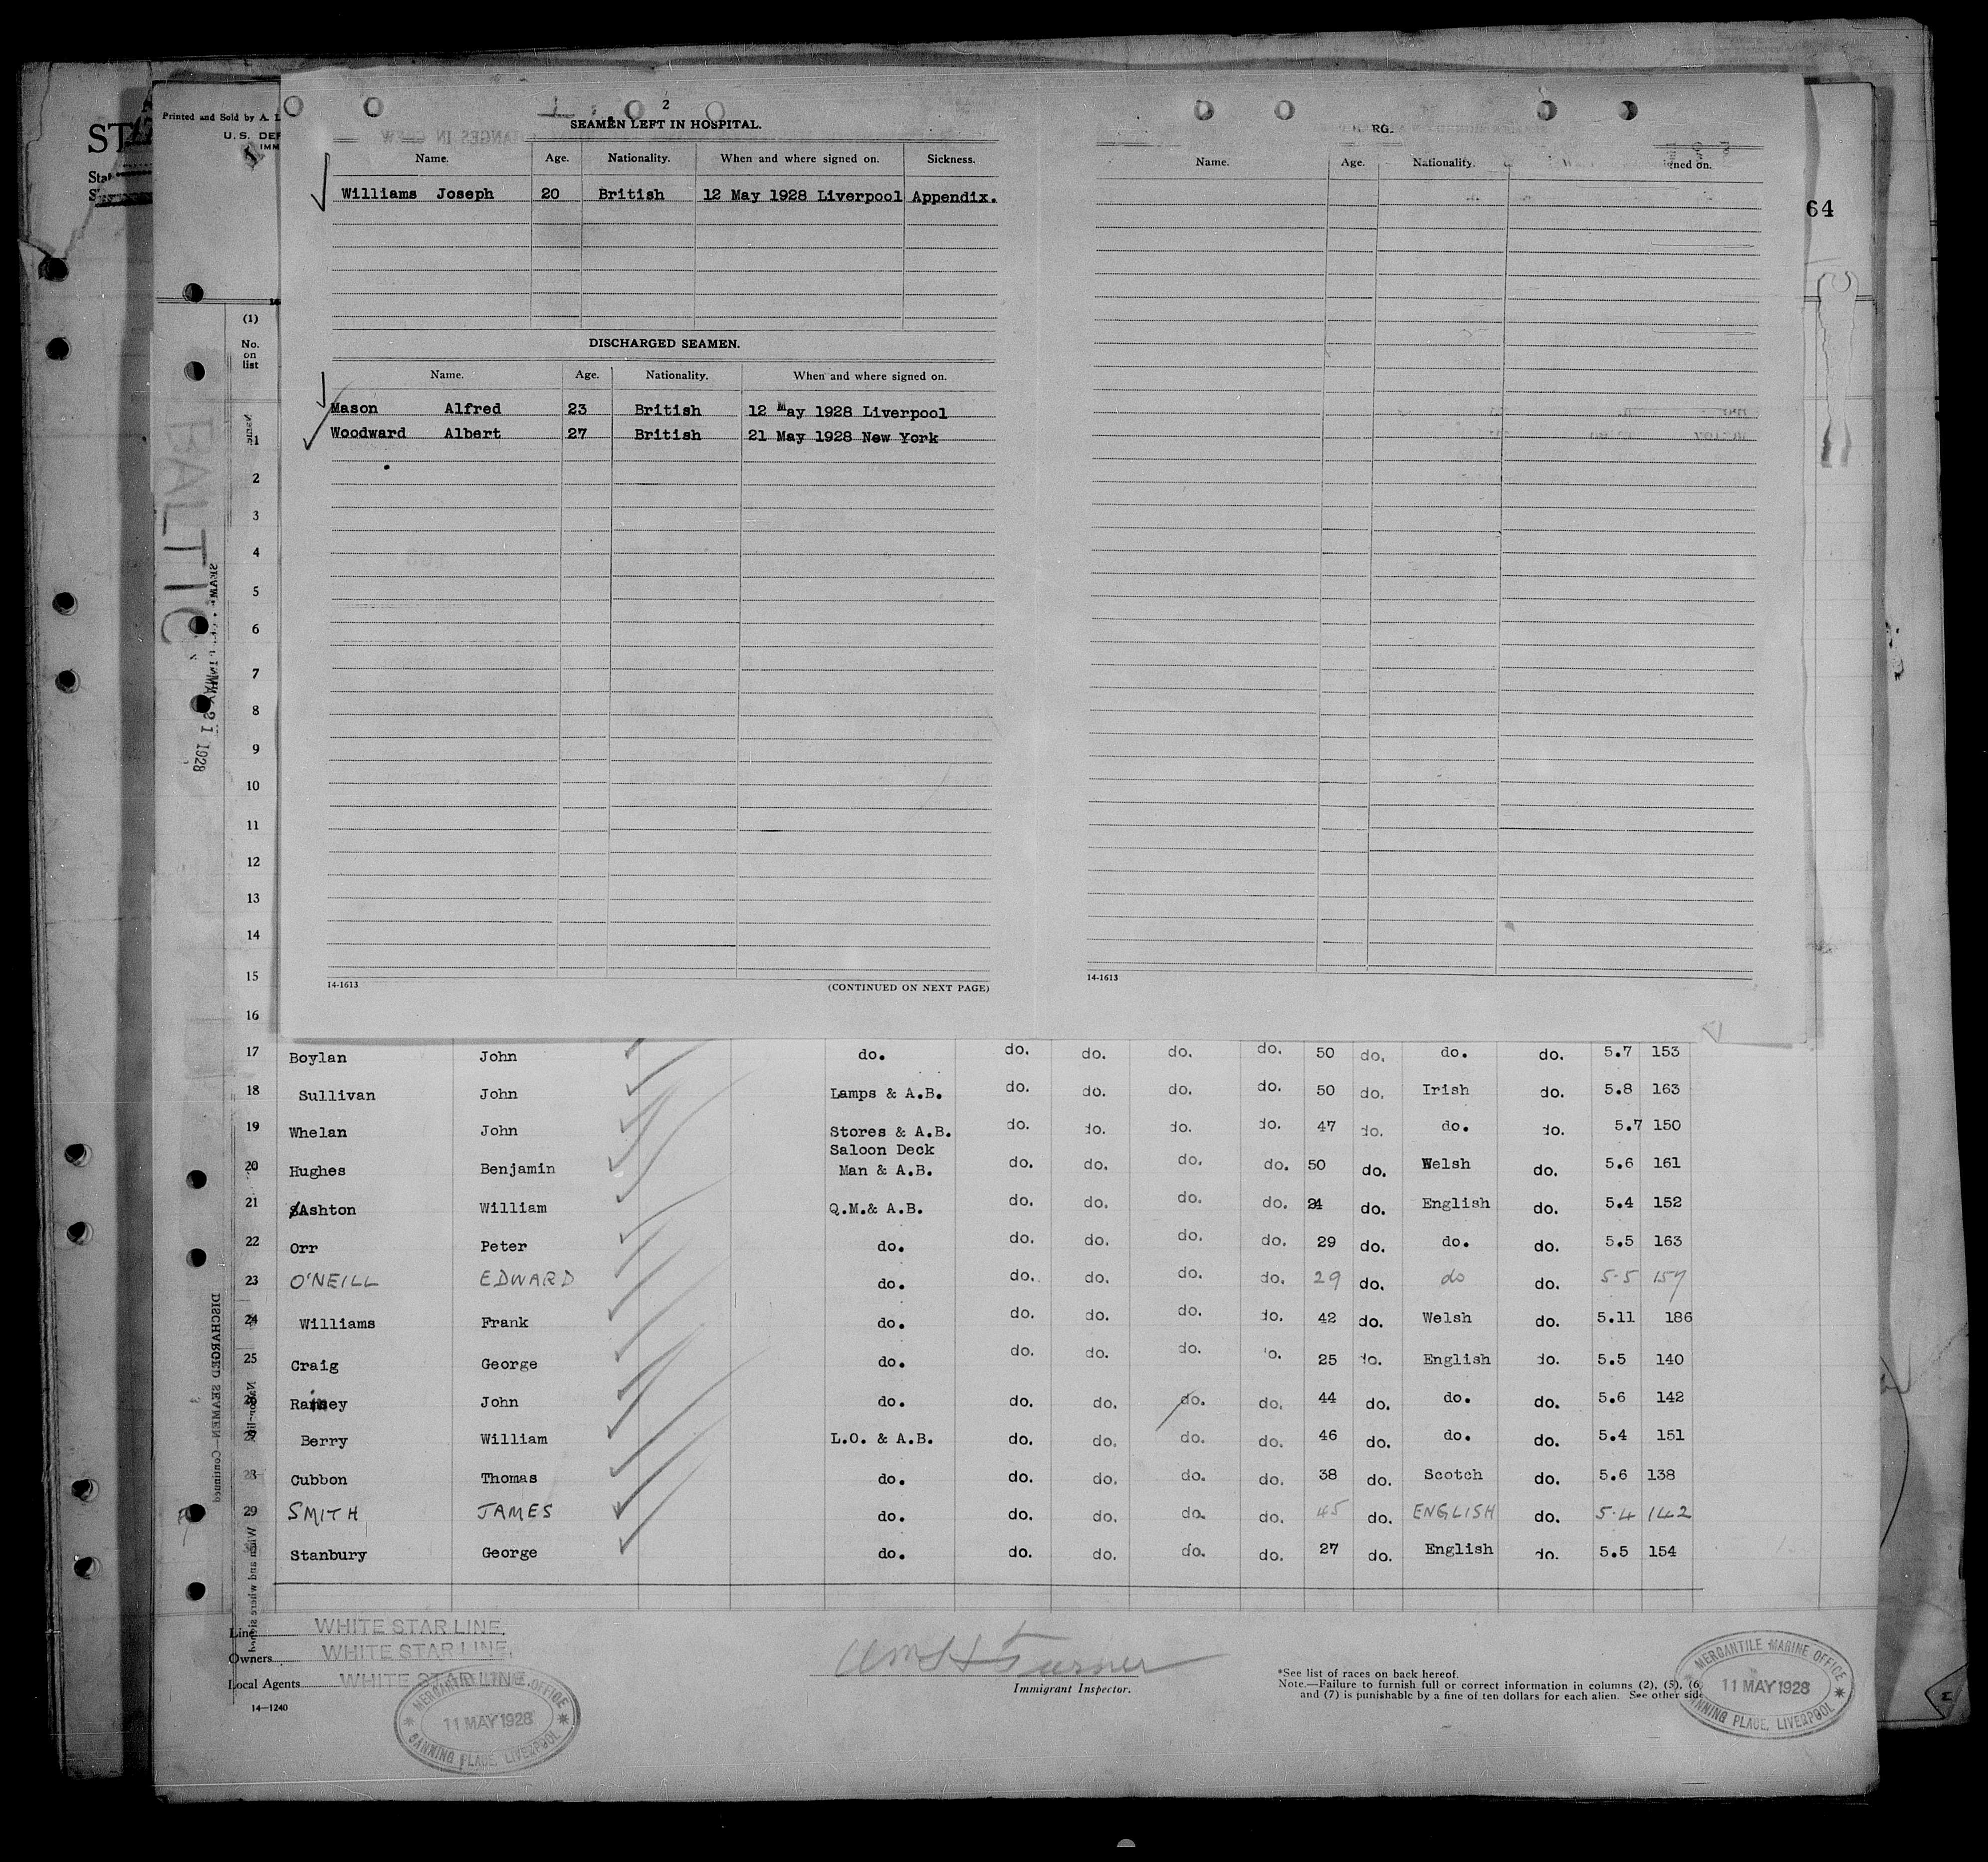 Printed and Sold by A.
ST
U. S. DEP
IMM
64
2
SEAMEN LEFT IN HOSPITAL.
Name. Age. Nationality. When and where signed on. Sickness.
Williams Joseph 20 British 12 May 1928 Liverpool Appendix.
DISCHARGED SEAMEN.
Name. Age. Nationality. When and where signed on.
Mason Alfred 23 British 12 May 1928 Liverpool
Woodward Albert 27 British 21 May 1928 New York
14-1613 (CONTINUED ON NEXT PAGE)
RG.
Name. Age. Nationality. gned on.
14-1613
BALTIC
MAY 21 1928
DISCHARGED SEAMEN—Continued
When and where signed
(1)
No.
on
list
1
2
3
4
5
6
7
8
9
10
11
12
13
14
15
16
17 Boylan John do. do. do. do. do. 50 do. do. do. 5.7 153
18 Sullivan John Lamps & A.B. do. do. do. do. 50 do. Irish do. 5.8 163
19 Whelan John Stores & A.B. do. do. do. do. 47 do. do. do. 5.7 150
Saloon Deck
20 Hughes Benjamin Man & A.B. do. do. do. do. 50 do. Welsh do. 5.6 161
21 Ashton William Q.M.& A.B. do. do. do. do. do. English do. 5.4 152
22 Orr Peter do. do. do. do. do. 29 do. do. do. 5.5 163
23 O'NEILL EDWARD do. do. do. do. do. 29 do. do do. 5.5 157
24 Williams Frank do. do. do. do. do. 42 do. Welsh do. 5.11 186
25 Craig George do. do. do. do. do. 25 do. English do. 5.5 140
26 John do. do. do. do. do. 44 do. do. do. 5.6 142
27 Berry William L.O. & A.B. do. do. do. do. 46 do. do. do. 5.4 151
28 Cubbon Thomas do. do. do. do. do. 38 do. Scotch do. 5.6 138
29 SMITH JAMES do. do. do. do. do. 45 do. ENGLISH do. 5.4 142
Stanbury George do. do. do. do. do. 27 do. English do. 5.5 154
Line WHITE STAR LINE.
Owners WHITE STAR LINE.
Local Agents WHITE STAR LINE.
14—1240
MERCANTILE MARINE OFFICE
11 MAY 1928
CANNING PLACE, LIVERPOOL
Turner
Immigrant Inspector.
*See list of races on back hereof.
Note.—Failure to furnish full or correct information in columns (2), (5), (6
and (7) is punishable by a fine of ten dollars for each alien. See other side
MERCANTILE MARINE OFFICE
11 MAY 1928
CANNING PLACE, LIVERPOOL